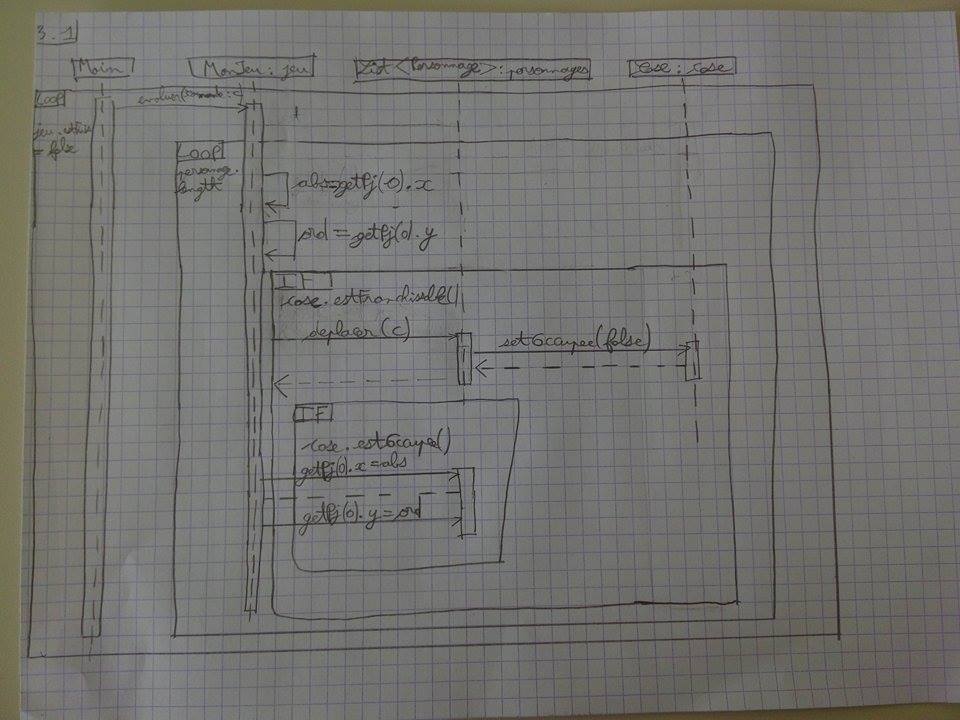 3.1
Main
MonJeu : jeu
List <Personnage> : personnages
Case : case
Loop
evoluer(commande : c)
jeu.estFini
= false
Loop
personnage.
length
abs=getPj(0).x
ord=getPj(0).y
IF
case.estFranchissable()
deplacer(c)
setOccupee(false)
IF
case.estOccupee()
getPj(0).x=abs
getPj(0).y=ord